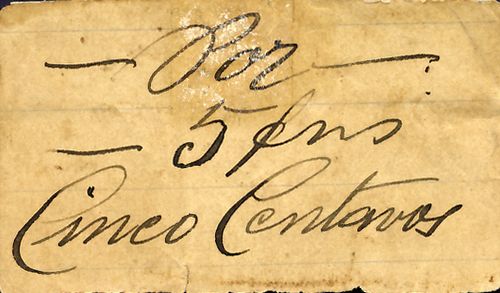 — Por —
— 5 ¢ns
Cinco Centavos